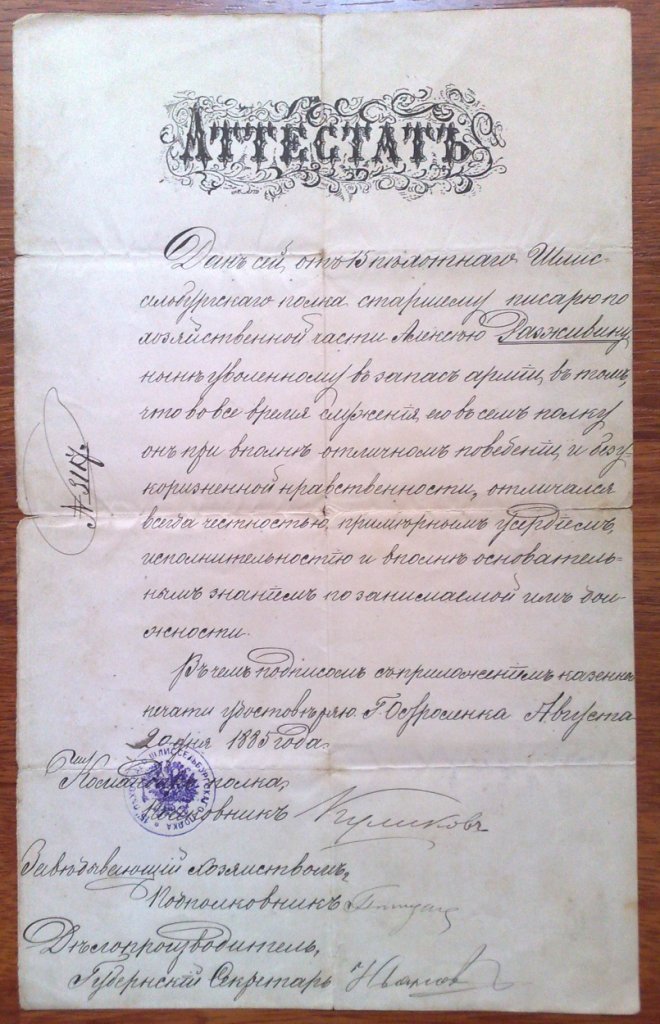 АТТЕСТАТЪ
Данъ сей, отъ 15 пѣхотнаго Шлис-
сельбургскаго полка старшему писарю по
хозяйственной части Алексѣю Разживину,
нынѣ уволенному въ запасъ армiи, въ томъ,
что во все время служенiя, его въ семъ полку
онъ при вполнѣ отличномъ поведенiи, и безу-
коризненной нравственности, отличался
всегда честностью, примѣрнымъ усердiемъ,
исполнительностiю и вполнѣ основатель-
нымъ знанiемъ по занимаемой имъ дол-
жности.
Въ чемъ подписомъ съ приложенiемъ казенной
печати удостовѣряю. Г. Остроленка Августа
20 дня 1885 года.
№ 3117.
Командиръ полка,
Полковникъ Куликовъ
Завѣдывающiй хозяйствомъ,
Подполковникъ
Дѣлопроизводитель,
Губернскiй Секретарь